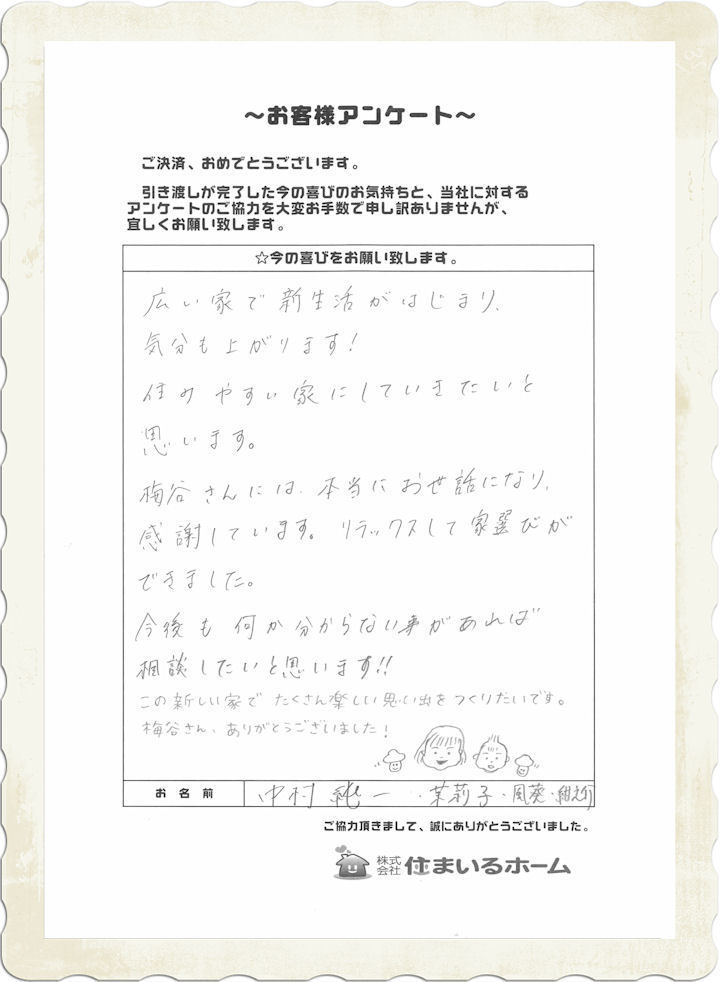 ～お客様アンケート～
ご決済、おめでとうございます。
引き渡しが完了した今の喜びのお気持ちと、当社に対する
アンケートのご協力を大変お手数で申し訳ありませんが、
宜しくお願い致します。
☆今の喜びをお願い致します。
広い家で新生活がはじまり、
気分も上がります!
住みやすい家にしていきたいと
思います。
梅谷さんには、本当にお世話になり、
感謝しています。リラックスして家選びが
できました。
今後も何か分からない事があれば
相談したいと思います!!
この新しい家でたくさん楽しい思い出をつくりたいです。
梅谷さん、ありがとうございました!
お名前 中村 純一・茉莉子・風葵・紺
ご協力頂きまして、誠にありがとうございました。
株式会社 住まいるホーム